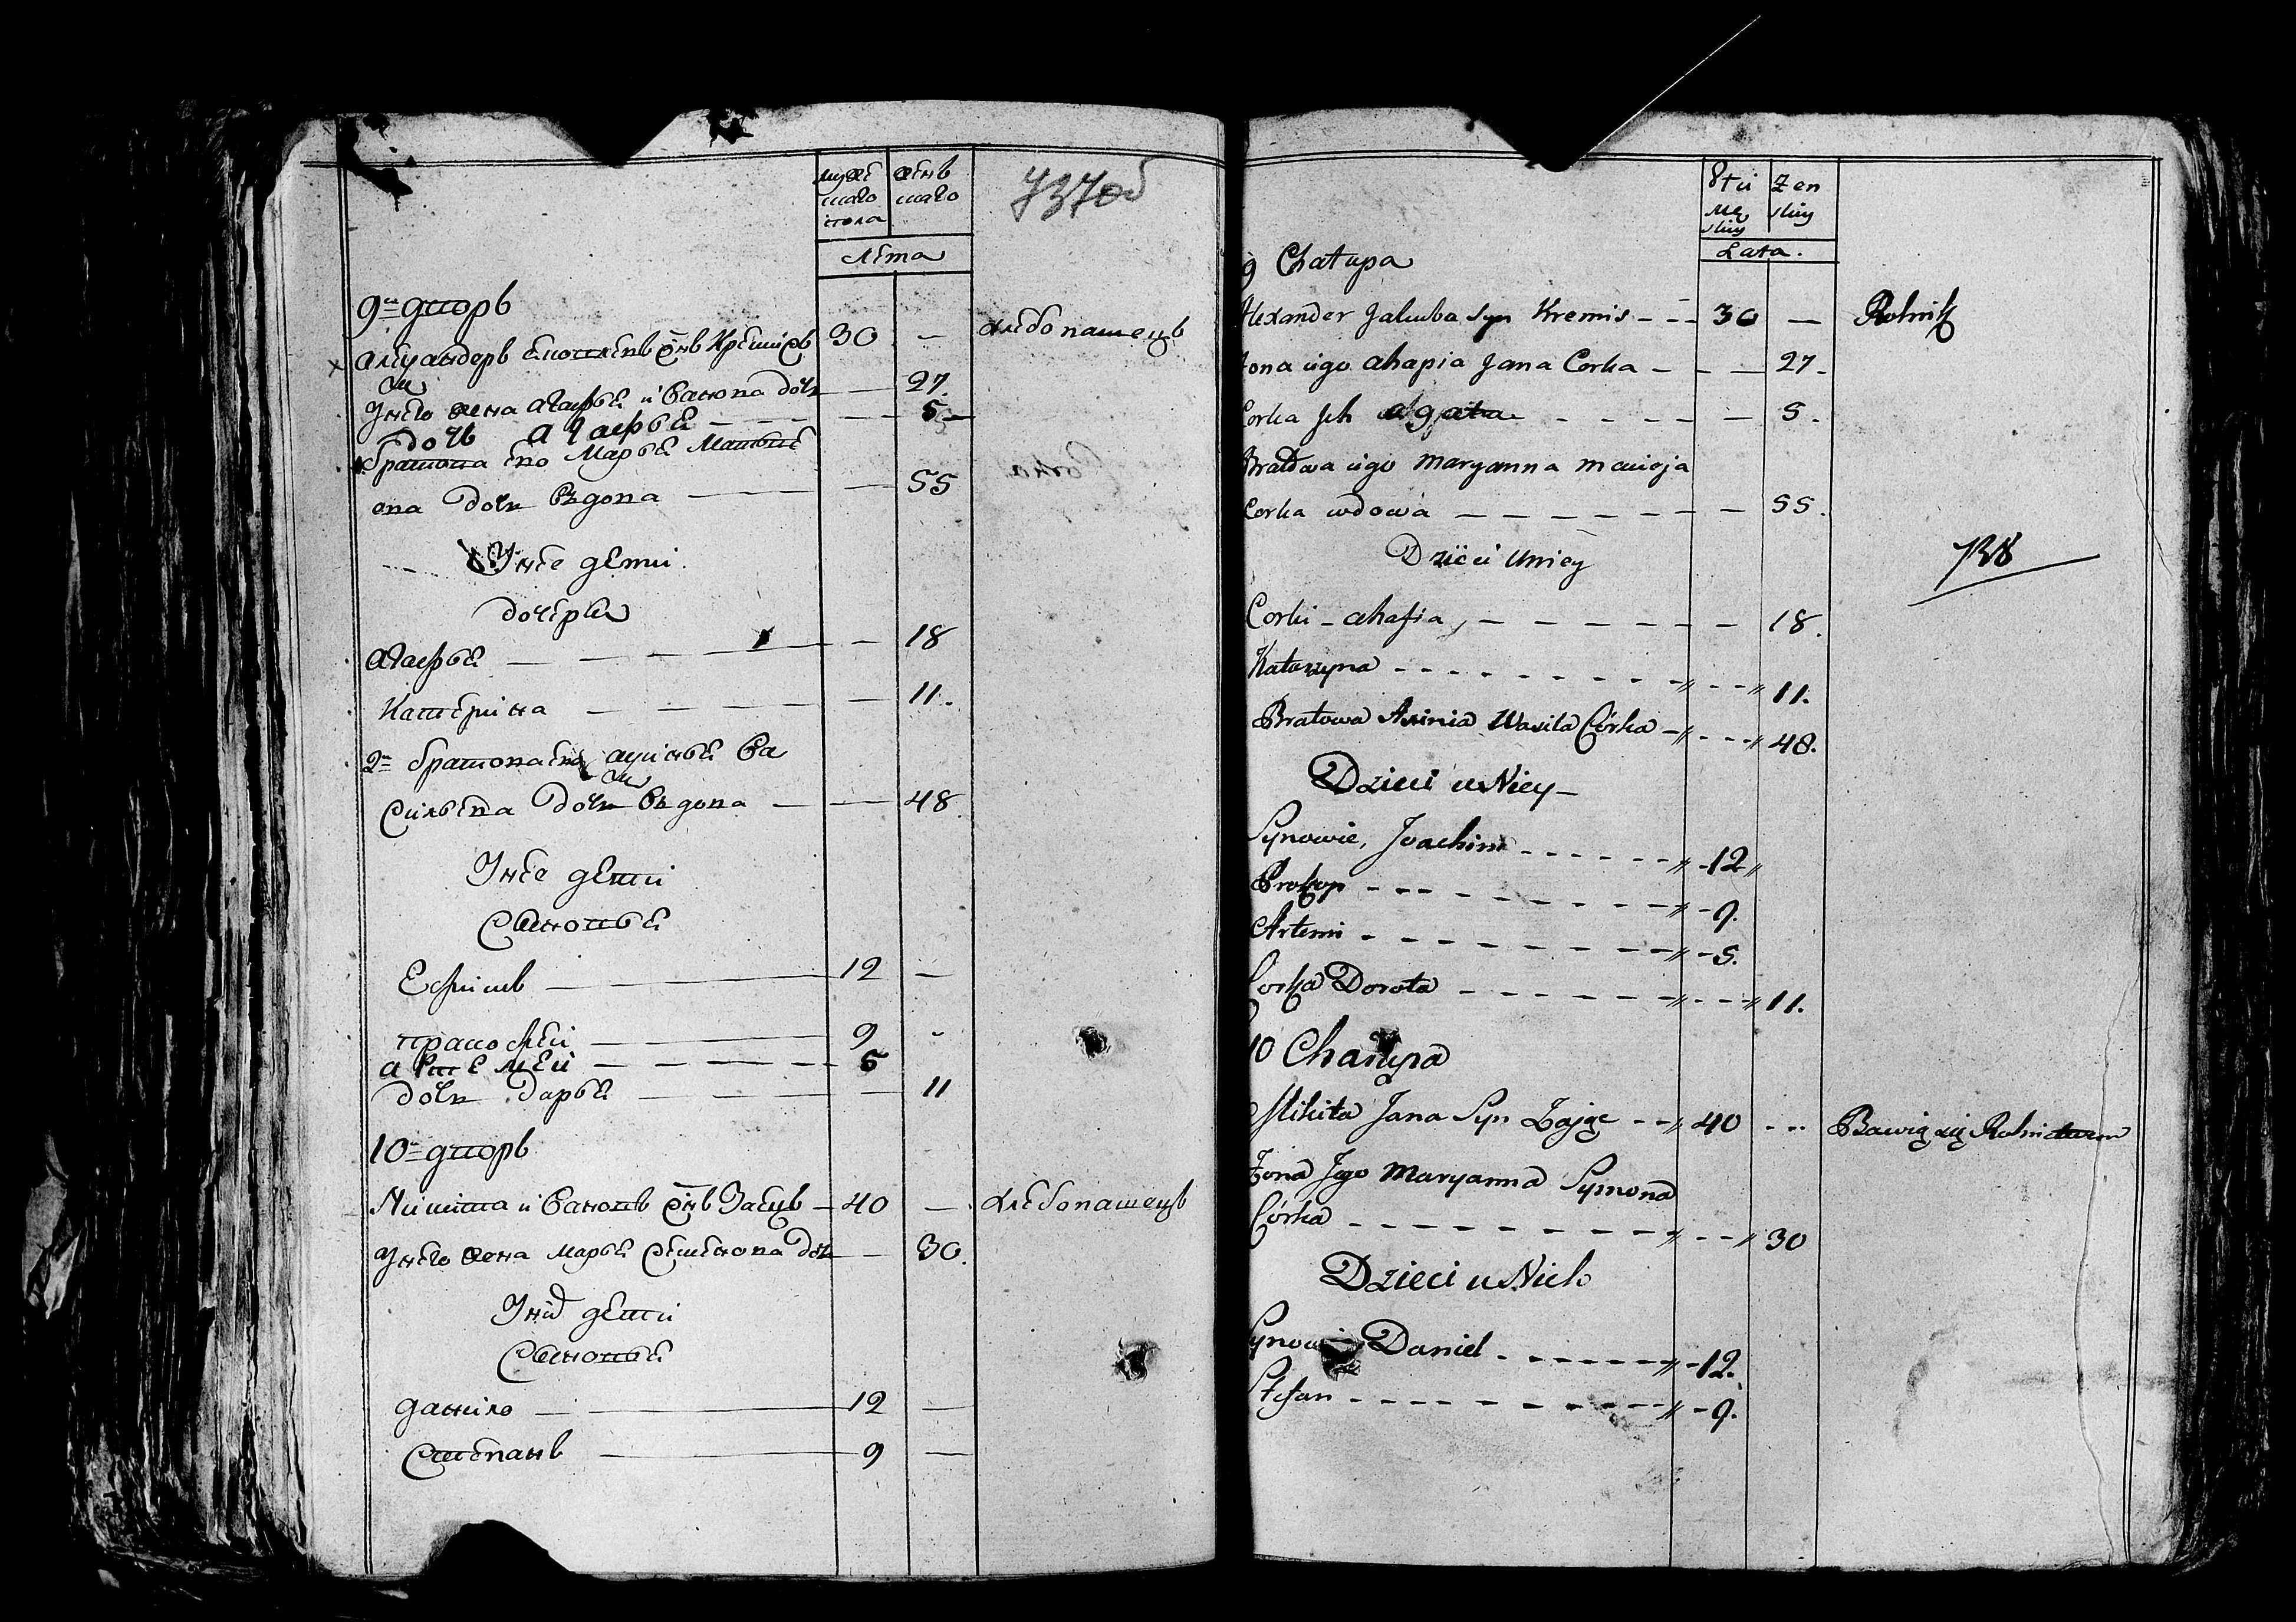 737об
муже
скаго
пола
женъ
скаго
лета
9й дворъ
александеръ Яковлевъ снъ Кремисъ 30 — хлебопашецъ
Унего жена агафья иванова дочь — 27
дочь агафья — 5
братова его Марья Матвѣе
ева дочь вдова — 55
У нее дети
дочери
агафья — 18
Катерина — 11.
2я братова его аксинья Ва
сильева дочь вдова — 48
У нее дети
Сыновья
Ефимъ 12 —
прокофей 9 -
артемей 5
дочь дарья — 11
10й дворъ
Микита ивановъ снъ Заецъ 40 — хлебопашецъ
Унего жена марья Семенова дочь — 30.
У них дети
Сыновья
данило 12 —
Степанъ 9 —
Płci
Mę
skiy
Zen
skiy
Lata.
9 Chałupa
Alexander Jakuba syn Kremis 30 — Rolnik
żona iego ahapia Jana Corka — 27
Corka Jch agata — 5.
Bratowa iego Maryanna macieja
Corka wdowa — 55.
Dzieci Uniey
738
Corki - ahafia, — 18.
Katarzyna 11.
Bratowa Axinia Wasila Córka 48.
Dzieci u Niey
Synowie, Joachim 12
Prokop 9.
Artemi 5.
Corka Dorota 11.
10 Chałupa
Mikita Jana Syn Zając 40 Bawią się Rolnictwem
Żona Jego Maryanna Symona
Córka 30
Dzieci u Nich
Synowie Daniel 12.
Stefan 9.